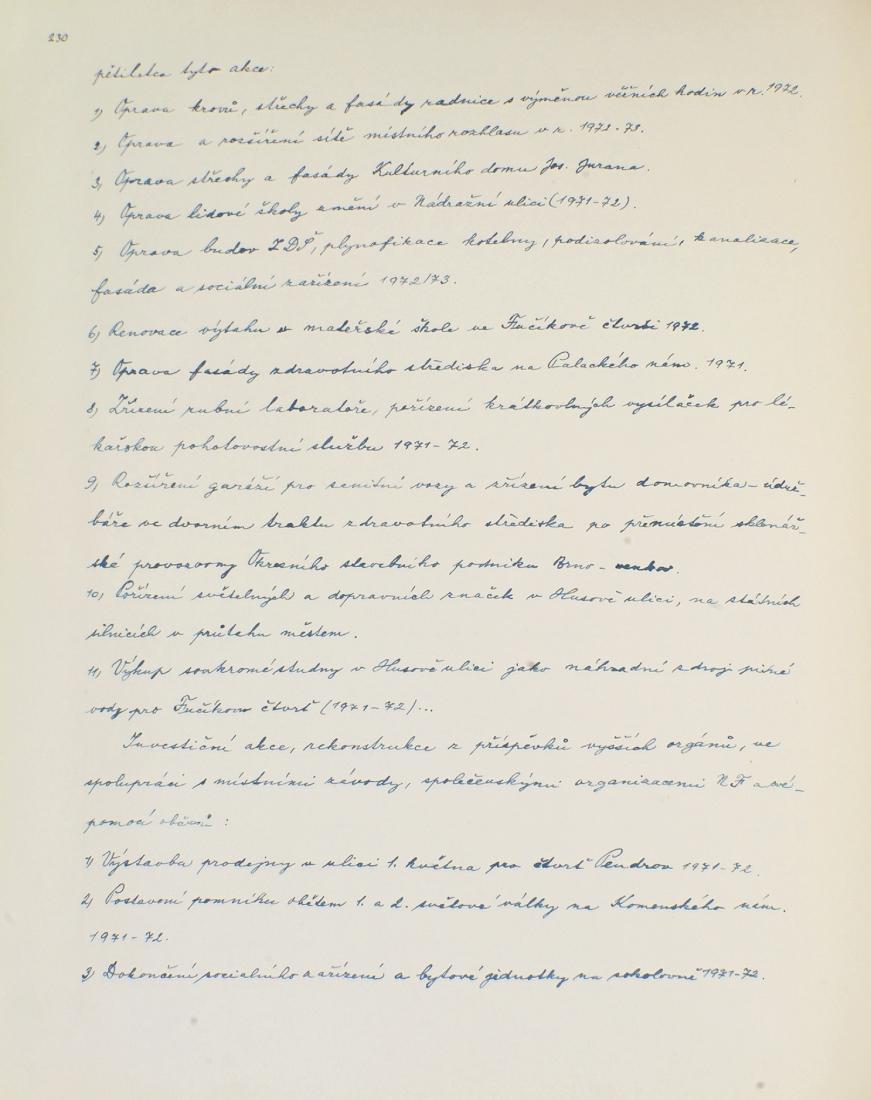 230
pětiletce tyto akce:
1) Oprava krovů, střechy a fasády radnice s výměnou věžních hodin v r. 1972.
2) Oprava a rozšíření sítě místního rozhlasu v r. 1972-73.
3) Oprava střechy a fasády Kulturního domu Jos. Jurana.
4) Oprava lidové školy umění v Nádražní ulici (1971-72).
5) Oprava budov ZDŠ, plynofikace kotelny, podizolování, kanalizace,
fasáda a sociální zařízení 1972/73.
6) Renovace výtahu v mateřské škole ve Fučíkově čtvrti 1972.
7) Oprava fasády zdravotního střediska na Palackého nám. 1971.
8) Zřízení zubní laboratoře, pořízení krátkovlných vysílaček pro lé-
kařskou pohotovostní službu 1971-72.
9) Rozšíření garáží pro sanitní vozy a zřízení bytu domovníka-údrž-
báře ve dvorním traktu zdravotního střediska po přemístění sklenář-
ské provozovny Okresního stavebního podniku Brno-venkov.
10) Pořízení světelných a dopravních značek v Husově ulici, na státních
silnicích v průtahu městem.
11) Výkup soukromé studny v Husově ulici jako náhradní zdroj pitné
vody pro Fučíkovu čtvrť (1971-72)...
Investiční akce, rekonstrukce z příspěvků vyšších orgánů, ve
spolupráci s místními závody, společenskými organizacemi NF a své-
pomocí občanů :
1) Výstavba prodejny v ulici 1. května pro čtvrť Pendrov 1971-72.
2) Postavení pomníku obětem 1. a 2. světové války na Komenského nám.
1971-72.
3) Dokončení socialního zařízení a bytové jednotky na sokolovně 1971-72.